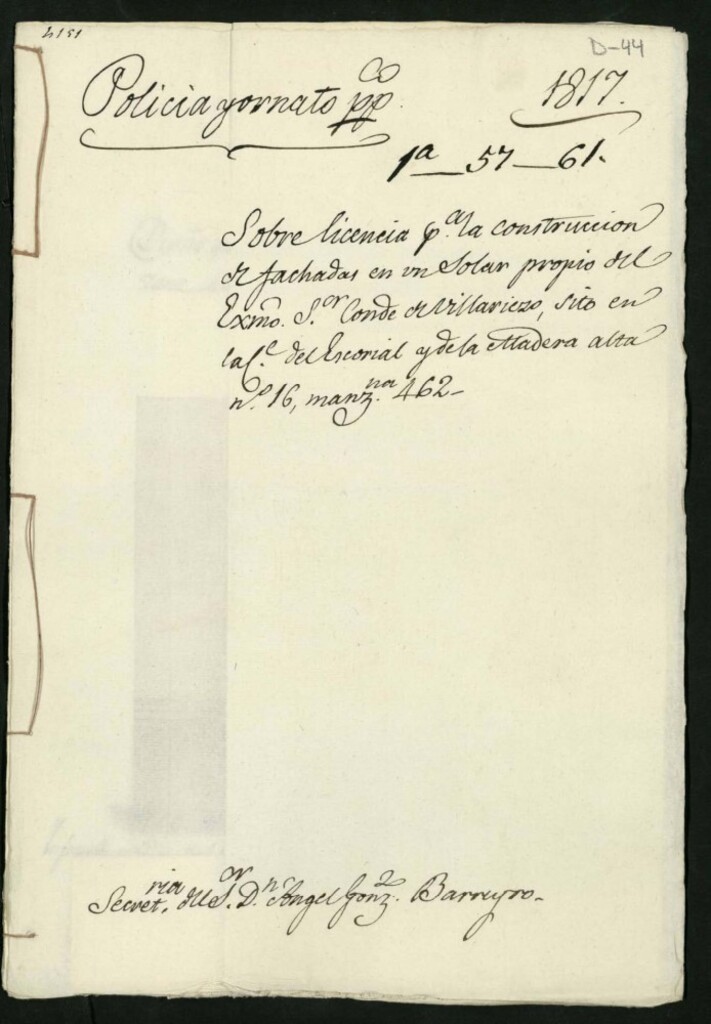 4151
D-44
Policia y ornato pp.co
1817.
1a_57_61.
Sobre licencia p.a la construccion
de fachadas en un Solar propio del
Exmo. S.or Conde de Villariezo, sito en
la C.e del Escorial y de la Madera alta
n.o 16, manz.na 462-
Secret.ria del S.or D.n Angel Gonz.z Barreyro-